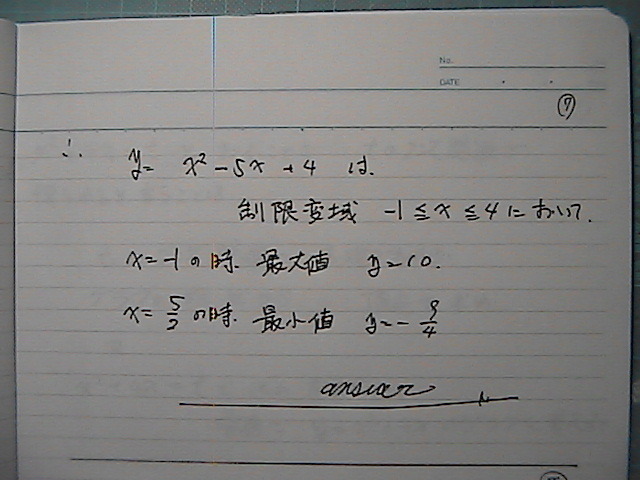 No.
DATE
⑦
∴ y= x² - 5x + 4 は.
制限変域 -1 ≦ x ≦ 4 において.
x=-1の時. 最大値 y=10.
x=5/2の時. 最小値 y=-9/4
answer